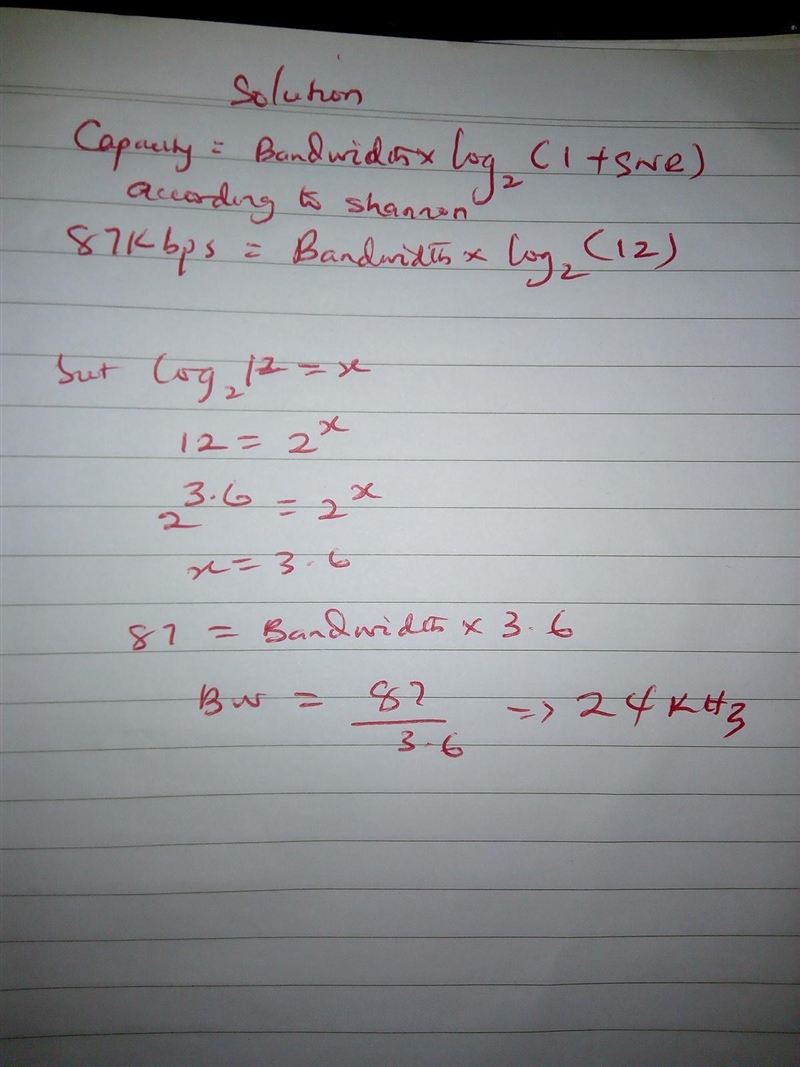 Solution
Capacity = Bandwidth x log₂ (1 + SNR)
according to shannon
87Kbps = Bandwidth x log₂ (12)
but log₂ 12 = x
12 = 2ˣ
2^3.6 = 2ˣ
x = 3.6
87 = Bandwidth x 3.6
BW = 87 / 3.6 => 24 KHz